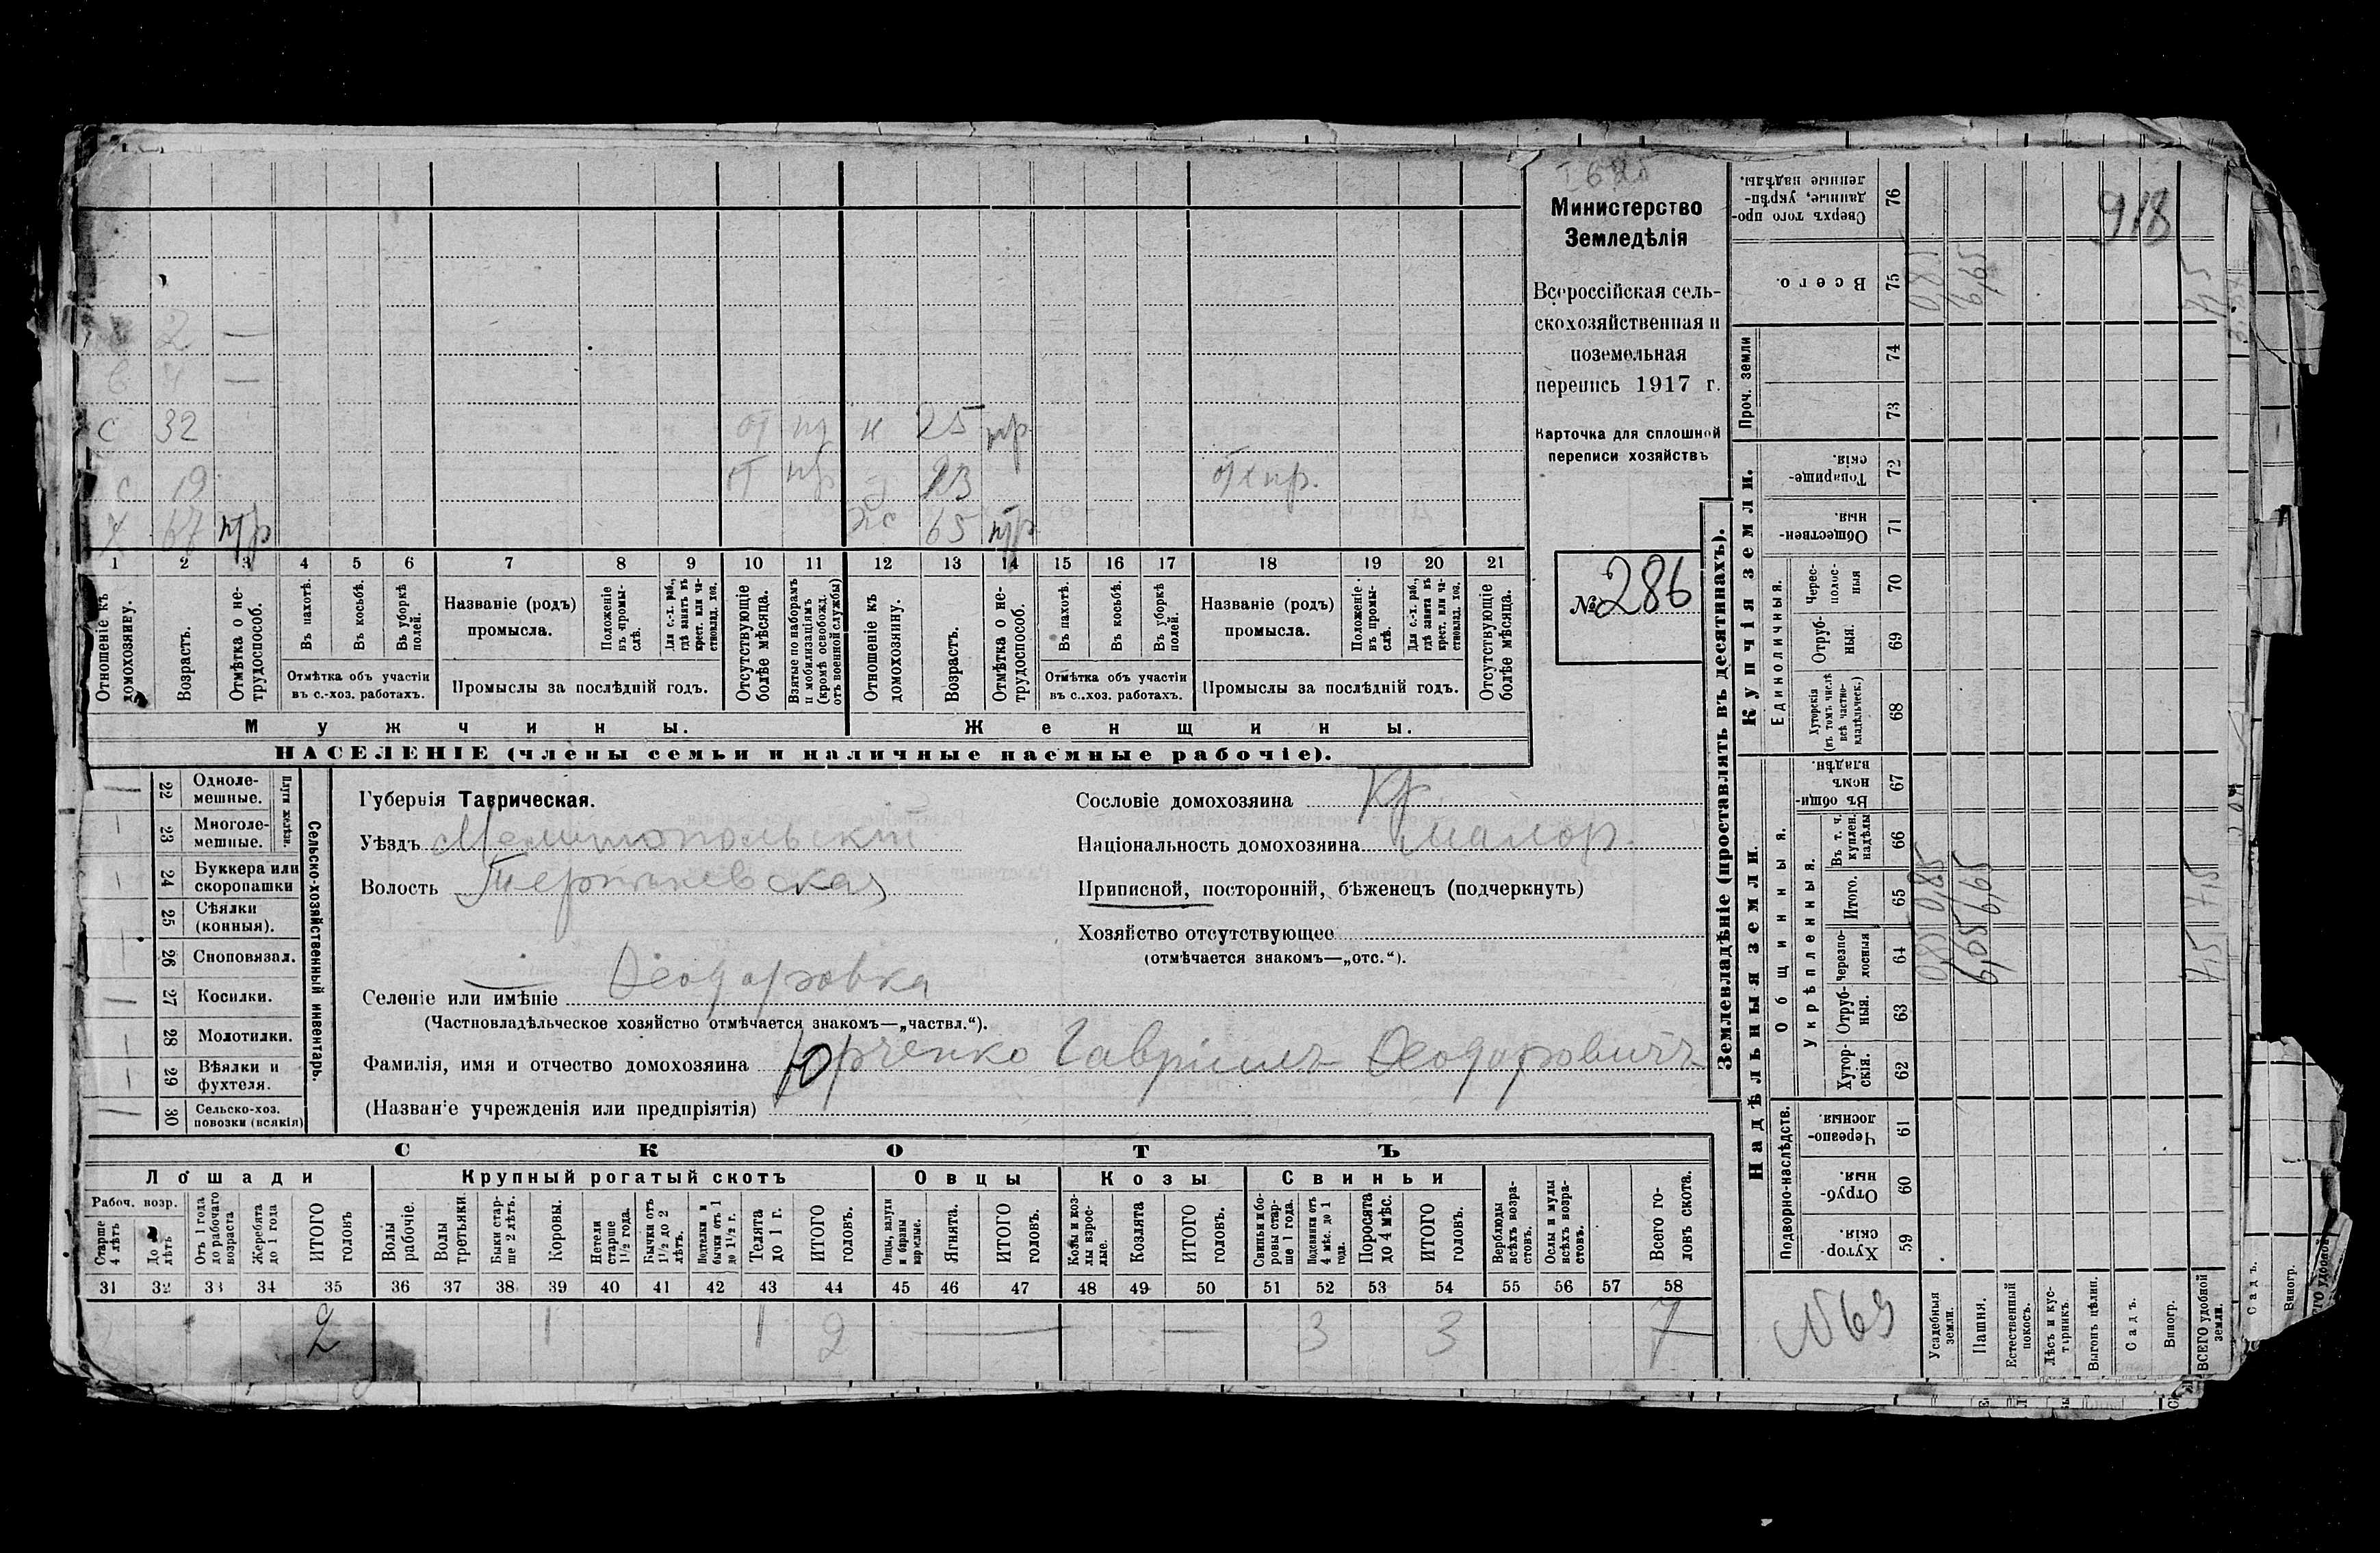 Министерство
Земледѣлія
Всероссійская сель-
скохозяйственная и
поземельная
перепись 1917 г.
Карточка для сплошной
переписи хозяйствъ
№ 286
918
2 —
4 —
с 32 от 25 нтр
с 19 от отх пр.
х 67 нтр 65 нтр
1 2 3 4 5 6 7 8 9 10 11 12 13 14 15 16 17 18 19 20 21
Отношеніе къ домохозяину.
Возрастъ.
Отмѣтка о не-трудоспособ.
Въ пахотѣ.
Въ косьбѣ.
Въ уборкѣ полей.
Отмѣтка объ участіи
въ с.-хоз. работахъ.
Названіе (родъ)
промысла.
Положеніе въ промы-слѣ.
Для с.-х. раб., гдѣ занятъ въ крест. или ча-стновлад. хоз.
Промыслы за послѣдній годъ.
Отсутствующіе болѣе мѣсяца.
Взятые по наборамъ и мобилизаціямъ (кромѣ освобожд. отъ военной службы)
Отношеніе къ домохозяину.
Возрастъ.
Отмѣтка о не-трудоспособ.
Въ пахотѣ.
Въ косьбѣ.
Въ уборкѣ полей.
Отмѣтка объ участіи
въ с.-хоз. работахъ.
Названіе (родъ)
промысла.
Положеніе въ промы-слѣ.
Для с.-х. раб., гдѣ занята въ крест. или ча-стновлад. хоз.
Промыслы за послѣдній годъ.
Отсутствующіе болѣе мѣсяца.
Мужчины. Женщины.
НАСЕЛЕНІЕ (члены семьи и наличные наемные рабочіе).
Сельско-хозяйственный инвентарь.
Плуги желѣзн.
22 Одноле-мешные.
23 Многоле-мешные.
24 Буккера или скоропашки
25 Сѣялки (конныя).
26 Сноповязал.
27 Косилки.
28 Молотилки.
29 Вѣялки и фухтеля.
30 Сельско-хоз. повозки (всякія)
Губернія Таврическая.
Уѣздъ Мелитопольскій
Волость
Селеніе или имѣніе Ѳеодоровка
(Частновладѣльческое хозяйство отмѣчается знакомъ—„частвл.“).
Фамилія, имя и отчество домохозяина Юрченко Гавріилъ Ѳеодоровичъ
(Названіе учрежденія или предпріятія)
Сословіе домохозяина кр.
Національность домохозяина малор.
Приписной, посторонній, бѣженецъ (подчеркнуть)
Хозяйство отсутствующее
(отмѣчается знакомъ—„отс.“).
СКОТЪ
Лошади Крупный рогатый скотъ Овцы Козы Свиньи
Рабоч. возр.
Старше 4 лѣтъ
До 4 лѣтъ
Отъ 1 года до рабочаго возраста
Жеребята до 1 года
ИТОГО головъ
Волы рабочіе.
Волы третьяки.
Быки стар-ше 2 лѣтъ.
Коровы.
Нетели старше 1½ года.
Бычки отъ 1½ до 2 лѣтъ.
Подтелки и бычки отъ 1 до 1½ г.
Телята до 1 г.
ИТОГО головъ.
Овцы, валухи и бараны взрослые.
Ягнята.
ИТОГО головъ.
Козы и коз-лы взрос-лые.
Козлята
ИТОГО головъ.
Свиньи и бо-ровы стар-ше 1 года.
Подсвинки отъ 4 мѣс. до 1 года.
Поросята до 4 мѣс.
ИТОГО головъ.
Верблюды всѣхъ возра-стовъ.
Ослы и мулы всѣхъ возра-стовъ.
Всего го-ловъ скота.
31 32 33 34 35 36 37 38 39 40 41 42 43 44 45 46 47 48 49 50 51 52 53 54 55 56 57 58
2 1 1 2 — — 3 3 7
Землевладѣніе (проставлять въ десятинахъ).
Надѣльныя земли.
Купчія земли.
Проч. земли
Подворно-наслѣдств.
Общинныя.
Укрѣпленныя.
Единоличныя.
59 Хутор-скія.
60 Отруб-ныя.
61 Черезпо-лосныя
62 Хутор-скія.
63 Отруб-ныя.
64 Черезпо-лосныя
65 Итого.
66 Въ т. ч. куплен. надѣлы
67 Въ общи-номъ владѣн.
68 Хуторскія (въ томъ числѣ всѣ частно-владѣльческ.)
69 Отруб-ныя.
70 Черес-полос-ныя
71 Обществен-ныя.
72 Товарище-скія.
73
74
75 Всего.
76 Сверхъ того про-данные, укрѣп-ленные надѣлы.
№69
Усадебныя земли.
Пашня.
Естественный покосъ.
Лѣсъ и кус-тарникъ.
Выгонъ цѣлин.
Садъ.
Виногр.
ВСЕГО удобной земли.
Садъ.
Виногр.